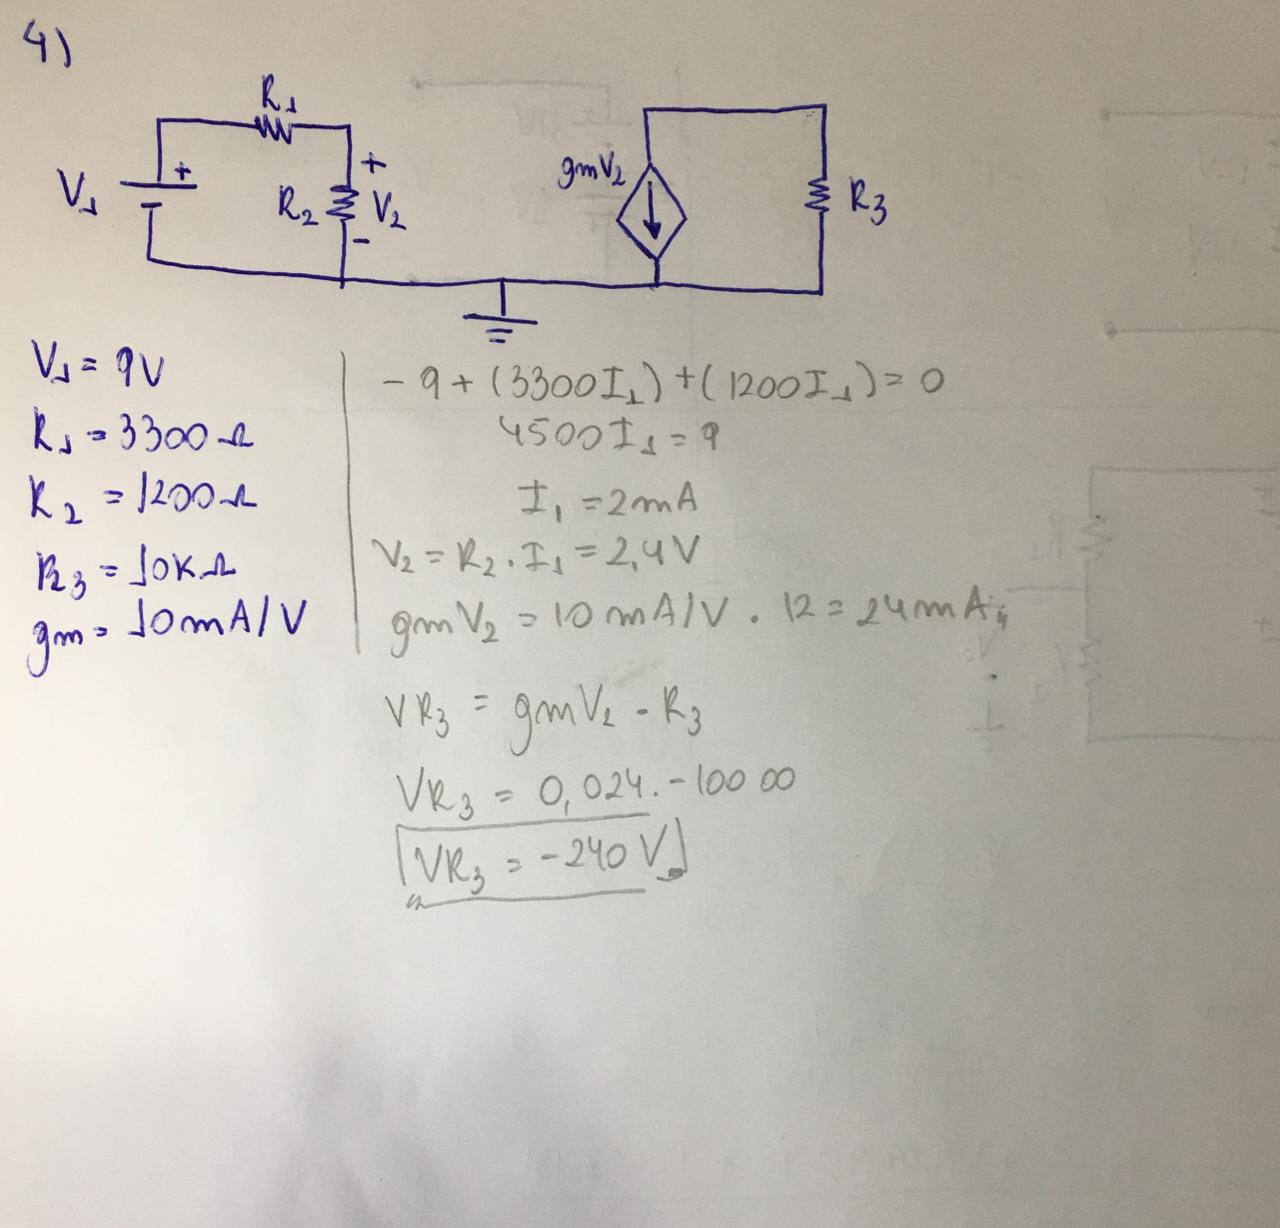 4)
R1
V1
+
R2
+
V2
-
gmV2
R3
V1 = 9V
R1 = 3300Ω
R2 = 1200Ω
R3 = 10KΩ
gm = 10mA/V
- 9 + (3300I1) + (1200I1) = 0
4500I1 = 9
I1 = 2mA
V2 = R2 . I1 = 2,4V
gmV2 = 10 mA/V . 12 = 24mA
VR3 = gmV2 - R3
VR3 = 0,024 . - 10000
VR3 = - 240 V